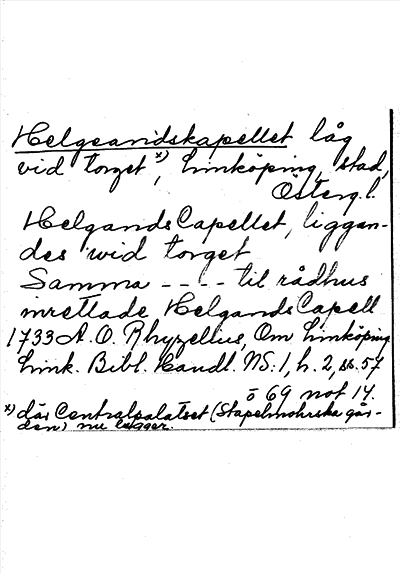 Helgeandskapellet låg
vid torget x), Linköping, stad,
Österg.l.
HelgandsCapellet, liggan-
des wid torget
Samma - - - - til rådhus
inrettade HelgandsCapell
1733 A. O. Rhyzelius, Om Linköping
Link. Bibl. Handl. NS. 1, h. 2, ss. 57
o 69 not 14.
x) där Centralpalatset (Stapelmohrska går-
den) nu ligger.